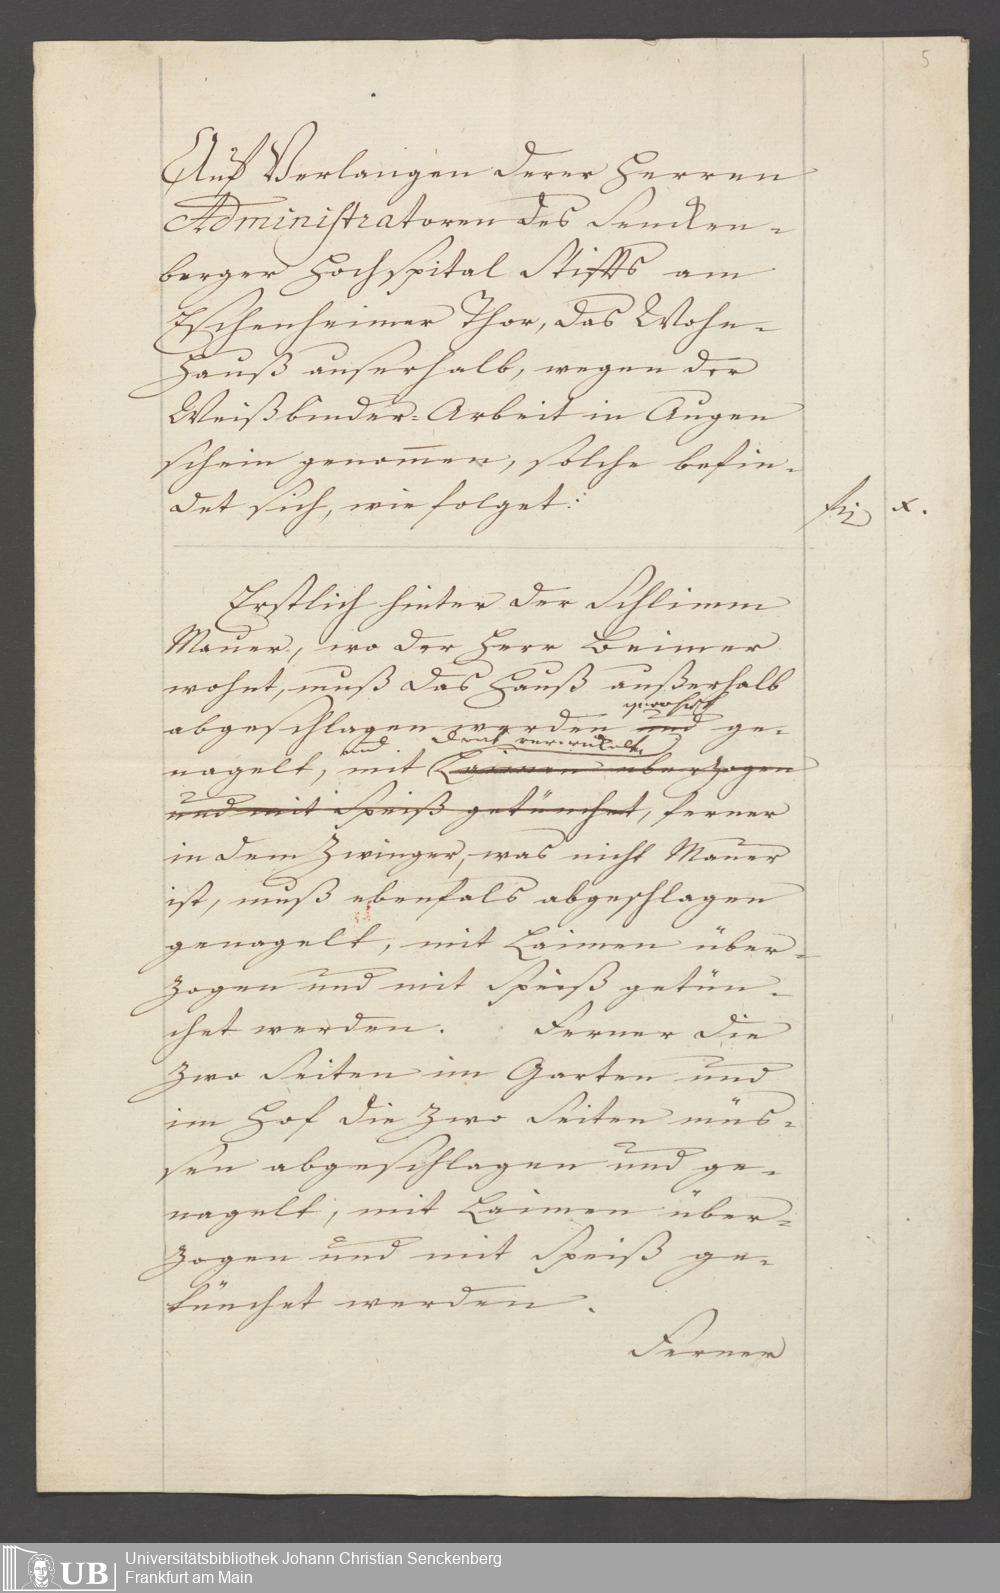 5
Auf Verlangen derer Herren
Administratoren des Sencken-
berger Hochspital Stiffts am
Eschenheimer Thor, das Wohn-
Hauß auserhalb, wegen der
Weißbinder-Arbeit in Augen
schein genommen, solche befin-
det sich, wie folget:
f x.
Erstlich hinter der Schlimm
Mauer, wo der Herr Beimer
wohnt, muß das Hauß außerhalb
abgeschlagen werden und ge-
nagelt, mit Laimen uberzogen
und
und mit Speiß getünchet, ferner
in dem Zwinger, was nicht Mauer
ist, muß ebenfals abgeschlagen
genagelt, mit Laimen über-
zogen und mit Speiß getün-
chet werden. Ferner die
zwo Seiten im Garten und
im Hof die zwo Seiten müs-
sen abgeschlagen und ge-
nagelt, mit Laimen über-
zogen und mit Speiß ge-
tünchet werden.
Ferner
UB Universitätsbibliothek Johann Christian Senckenberg
Frankfurt am Main